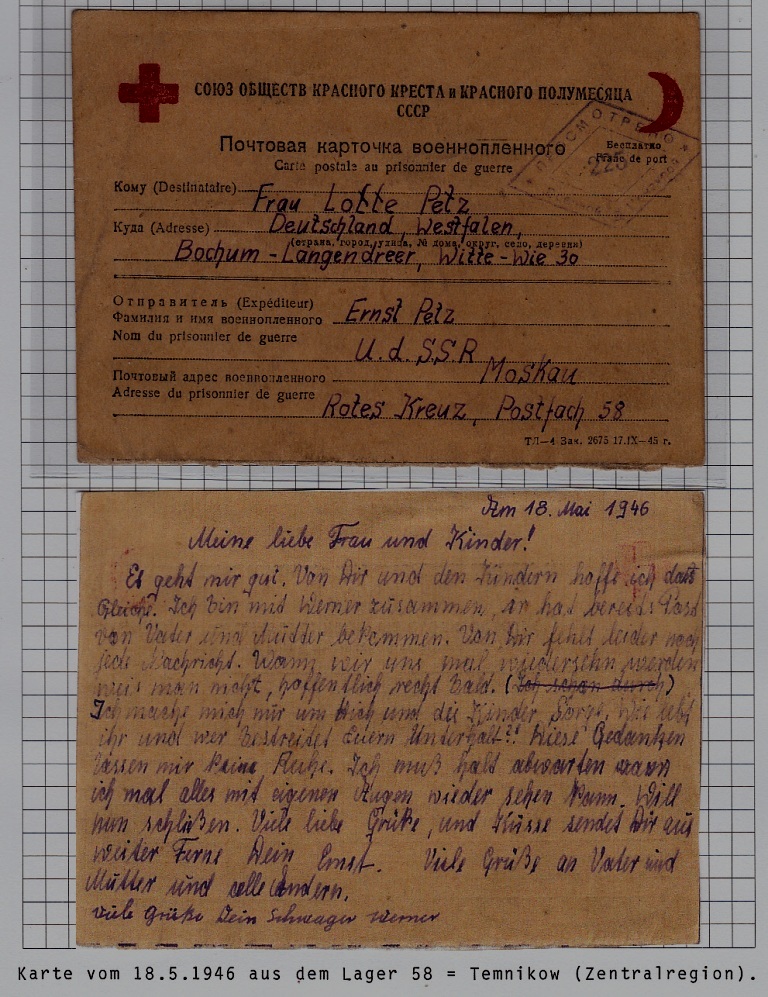 СОЮЗ ОБЩЕСТВ КРАСНОГО КРЕСТА и КРАСНОГО ПОЛУМЕСЯЦА
СССР
ПРОСМОТРЕНО
Почтовая карточка военнопленного
Бесплатно
Carte postale au prisonnier de guerre
Franc de port
Кому (Destinataire) Frau Lotte Petz
Куда (Adresse) Deutschland, Westfalen,
(страна, город, улица, № дома, округ, село, деревня)
Bochum - Langendreer, Witte-Wie 30
Отправитель (Expéditeur)
Фамилия и имя военнопленного Ernst Petz
Nom du prisonnier de guerre
U.d.S.S.R
Почтовый адрес военнопленного Moskau
Adresse du prisonnier de guerre
Rotes Kreuz, Postfach 58
ТЛ—4 Зак. 2675 17.IX—45 г.
Am 18. Mai 1946
Meine liebe Frau und Kinder!
Es geht mir gut. Von Dir und den Kindern hoffe ich das
Gleiche. Ich bin mit Werner zusammen, er hat bereits Post
von Vater und Mutter bekommen. Von Dir fehlt leider noch
jede Nachricht. Wann wir uns mal wiedersehn werden
weis man nicht, hoffentlich recht bald. (Ich schon durch)
Ich mache mich nur um Dich und die Kinder Sorge. Wie lebt
ihr und wer bestreitet Euern Unterhalt?! Diese Gedanken
lassen mir keine Ruhe. Ich muß halt abwarten wann
ich mal alles mit eigenen Augen wieder sehen kann. Will
nun schließen. Viele liebe Grüße, und Küsse sendet Dir aus
weiter Ferne Dein Ernst. Viele Grüße an Vater und
Mutter und alle Andern.
Viele Grüße Dein Schwager Werner
Karte vom 18.5.1946 aus dem Lager 58 = Temnikow (Zentralregion).